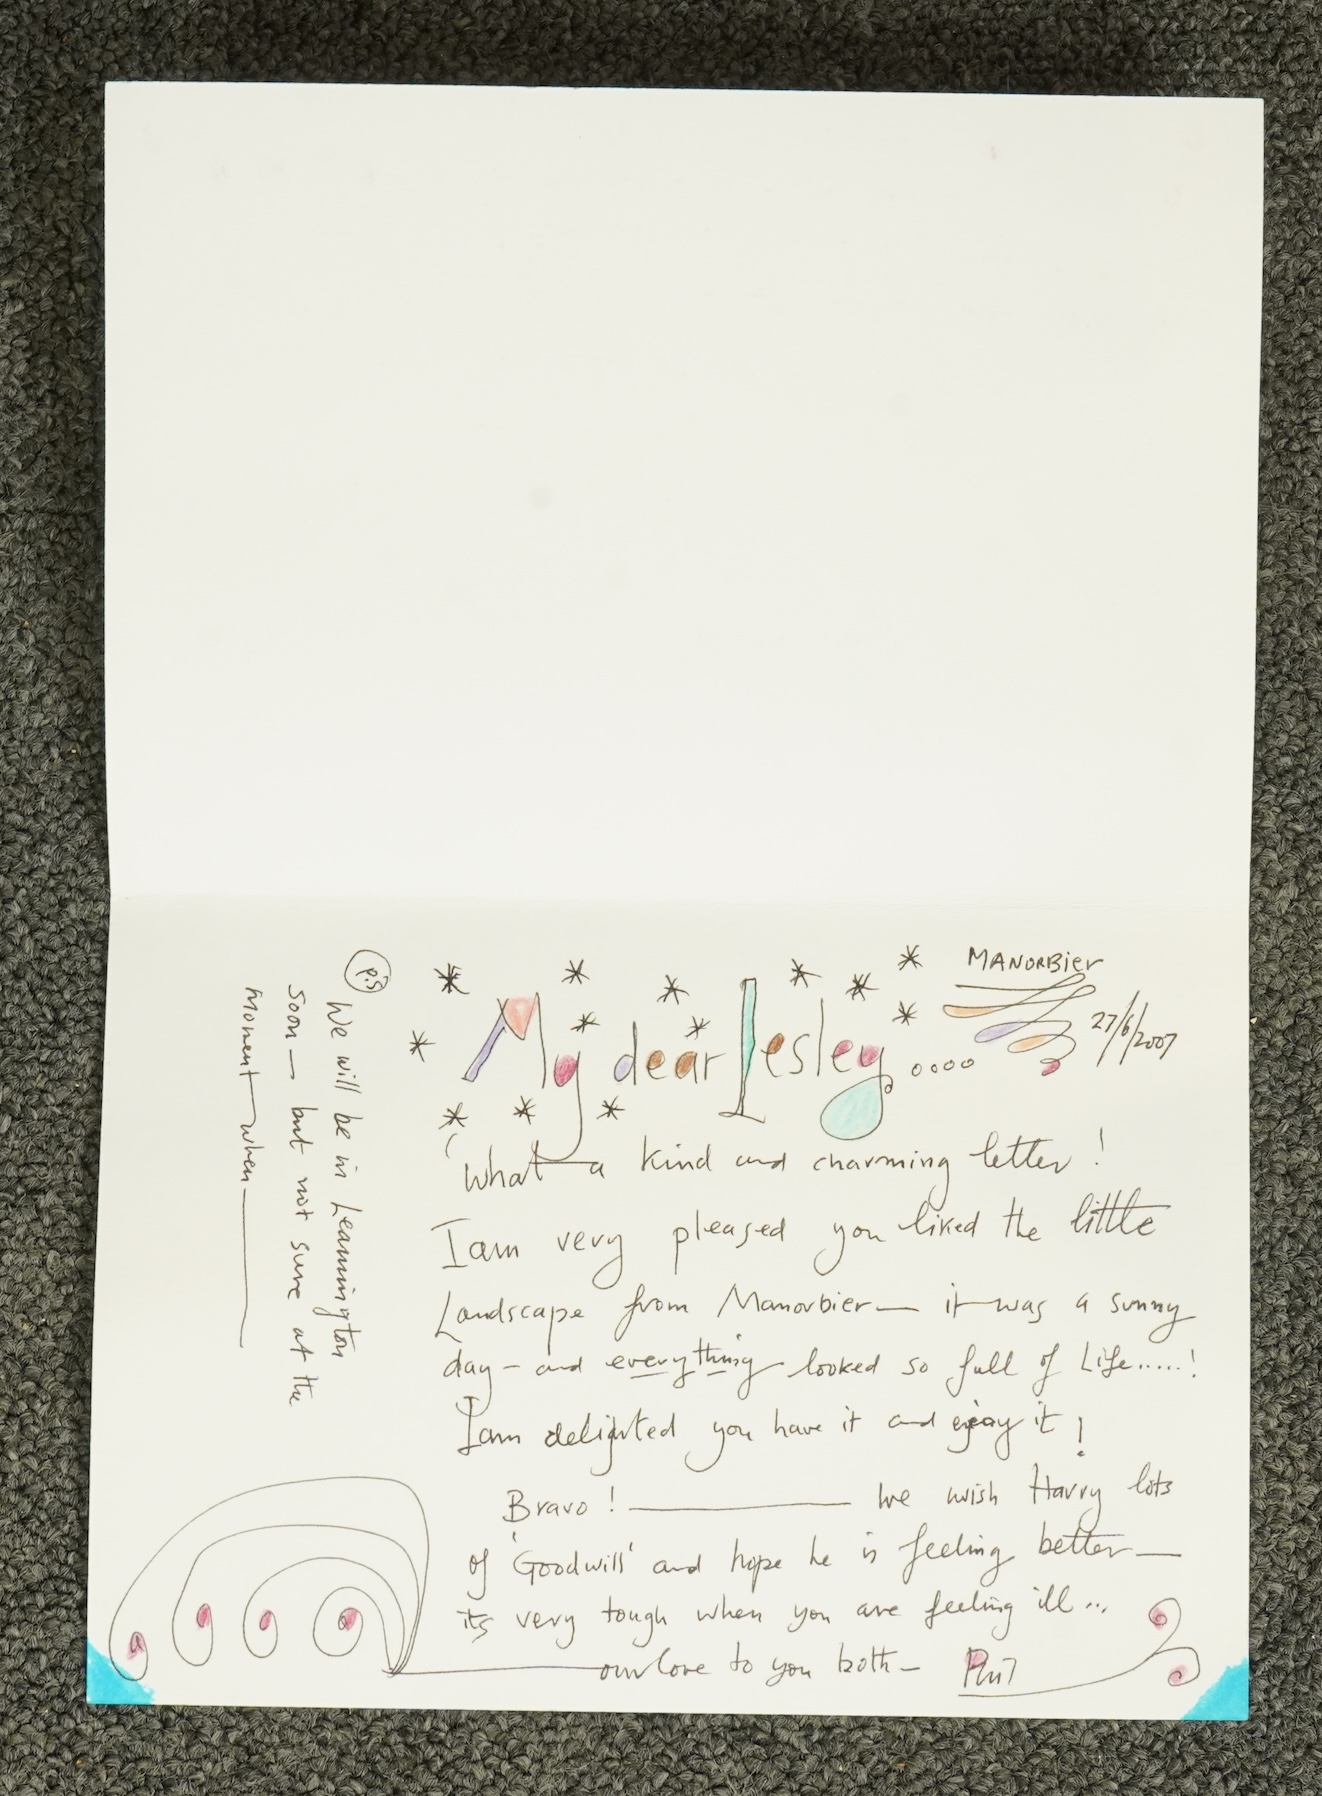 MANORBier
27/6/2007
My dear Lesley ....
What a kind and charming letter!
I am very pleased you liked the little
Landscape from Manorbier — it was a sunny
day — and everything looked so full of Life.....!
I am delighted you have it and enjoy it!
Bravo! ——— We wish Harry lots
of 'Goodwill' and hope he is feeling better —
its very tough when you are feeling ill...
our love to you both —
P.S
We will be in Leamington
soon — but not sure at the
moment — when ———